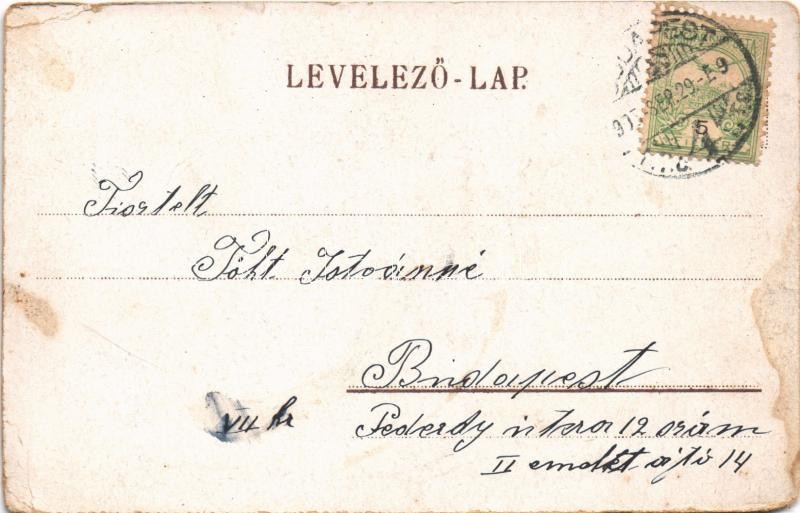 LEVELEZŐ-LAP.
5
Tisztelt
Tóht Istvánné
Budapest
VII kr
utcza 12 szám
II emelet ajtó 14